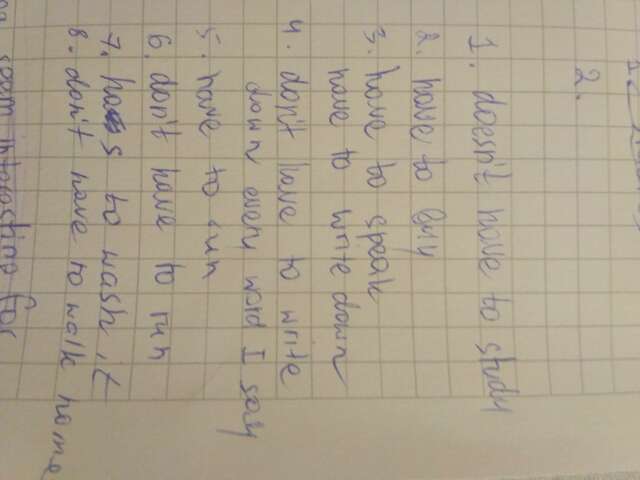 2.
1. doesn't have to study
2. have to buy
3. have to speak
have to write down
4. don't have to write
down every word I say
5. have to run
6. don't have to run
7. has to wash it
8. don't have to walk home
seem interesting for